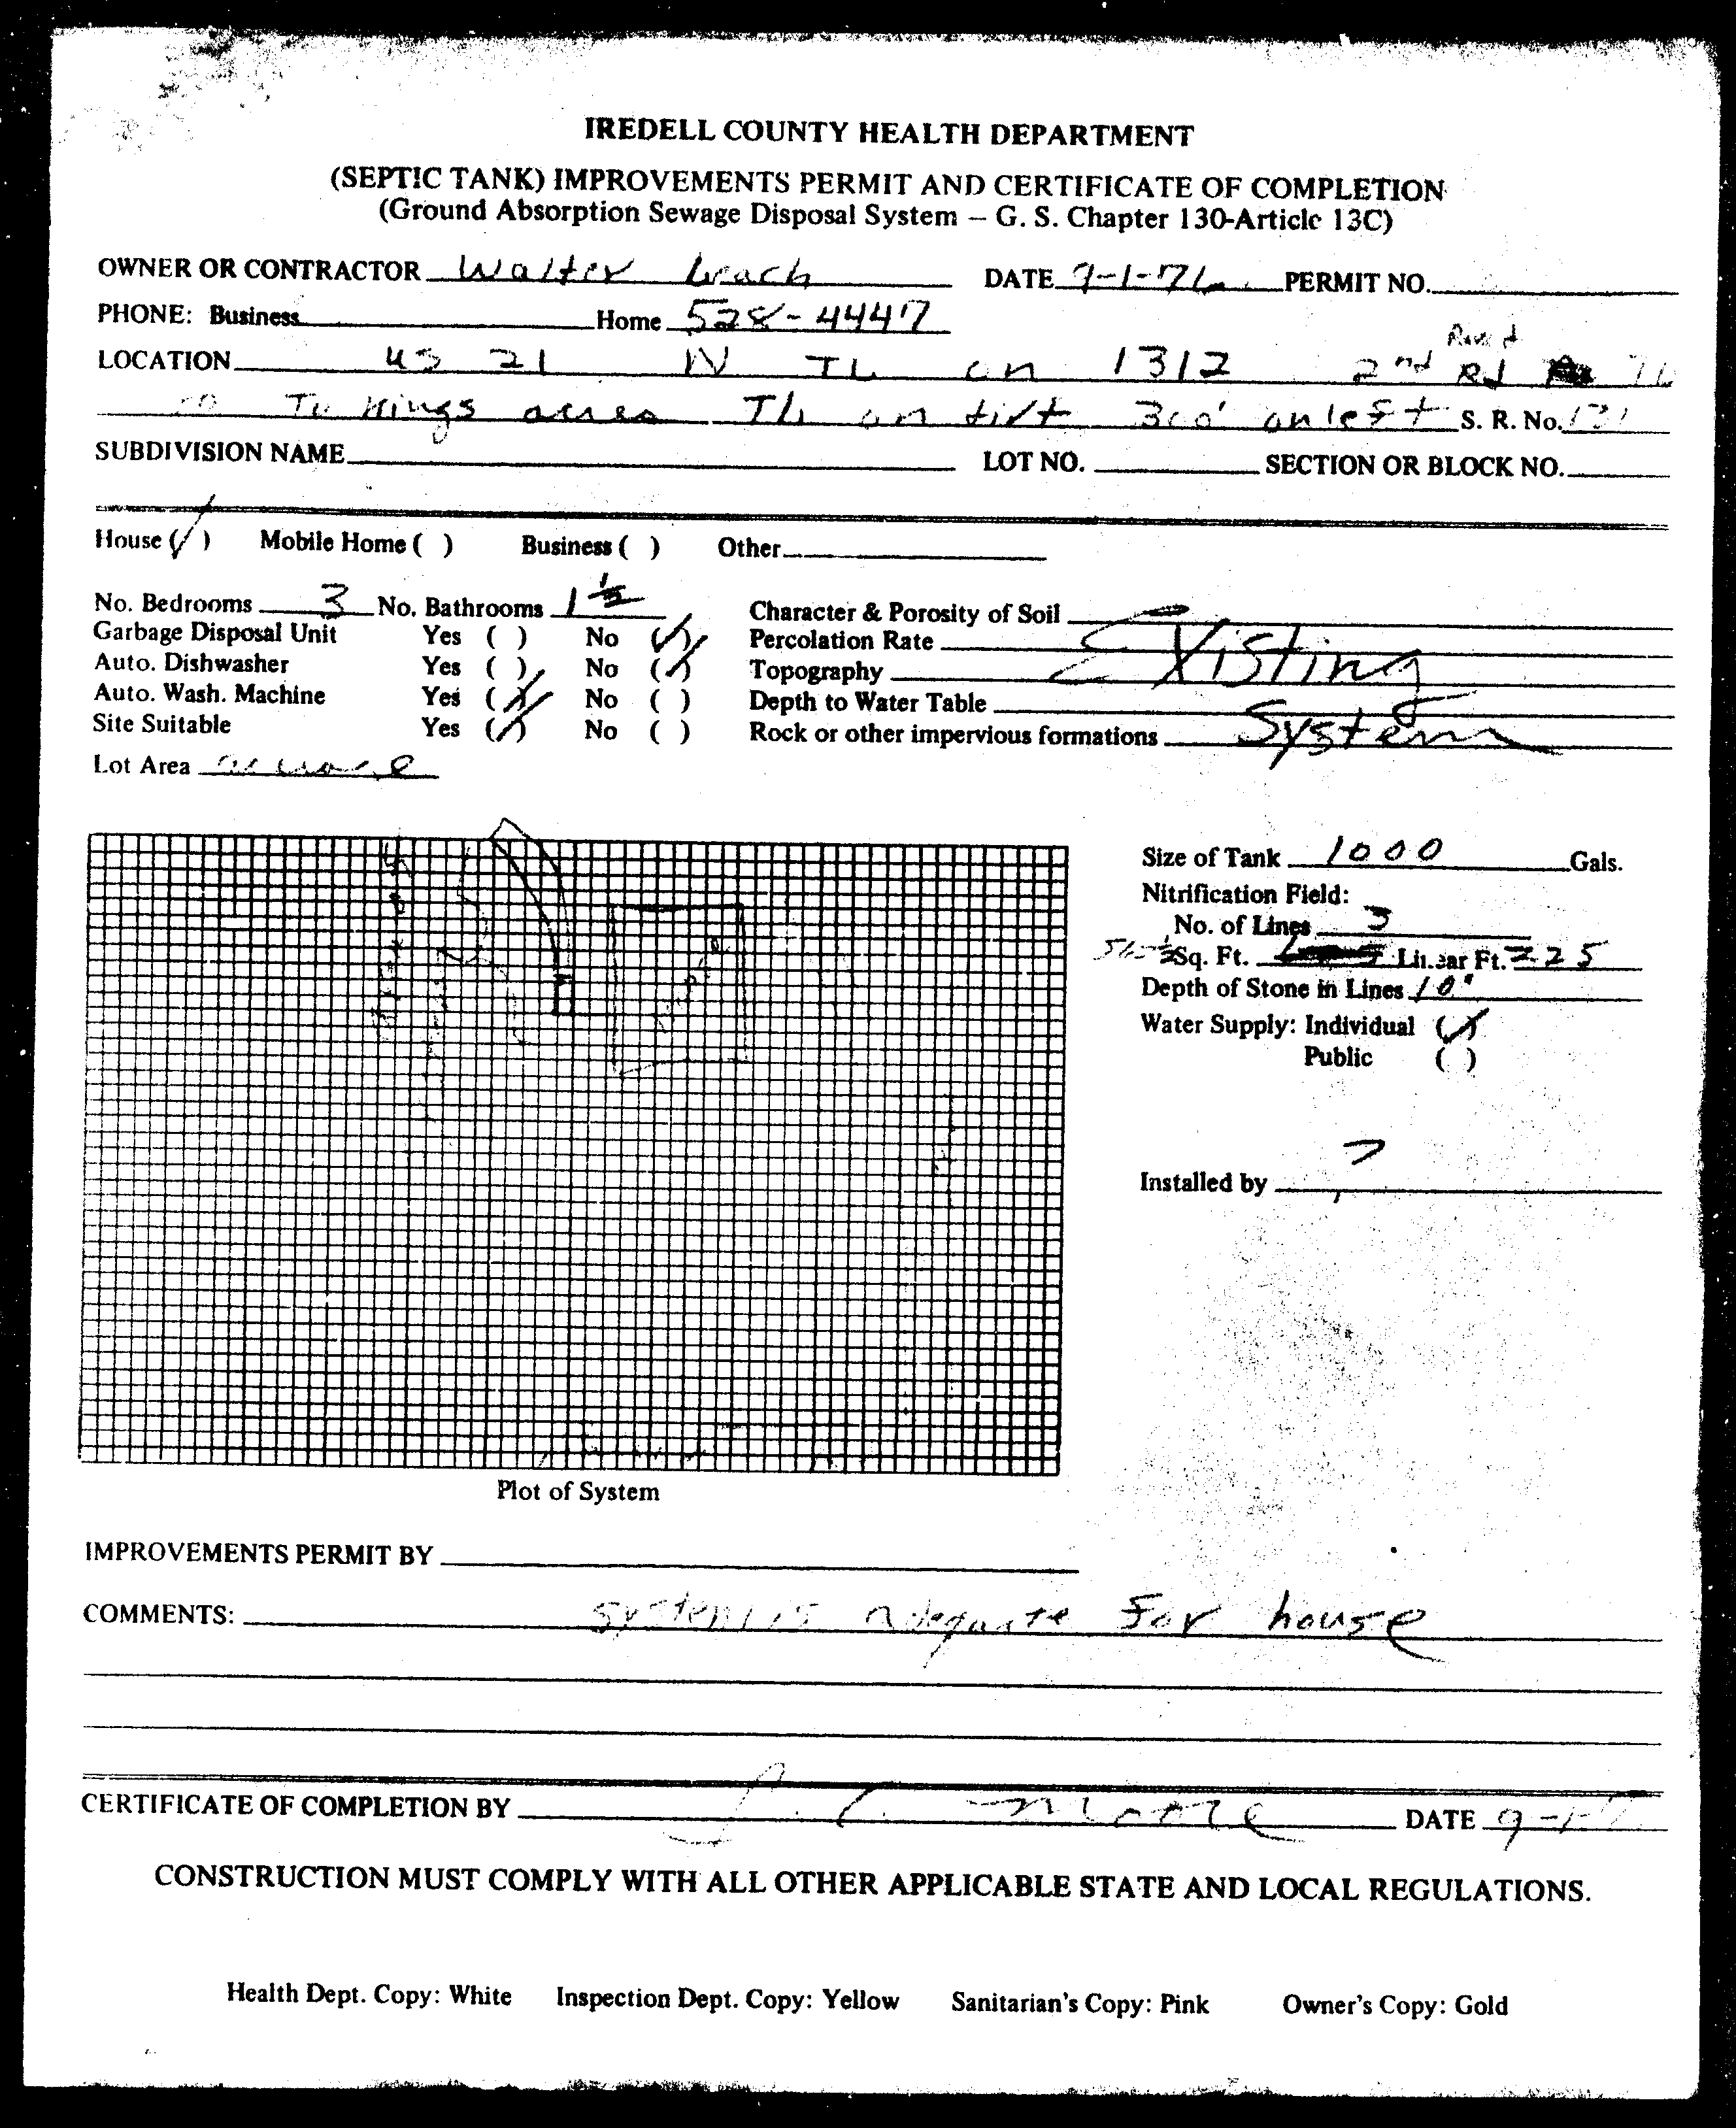 IREDELL COUNTY HEALTH DEPARTMENT
(SEPTIC TANK) IMPROVEMENTS PERMIT AND CERTIFICATE OF COMPLETION
(Ground Absorption Sewage Disposal System – G. S. Chapter 130-Article 13C)
OWNER OR CONTRACTOR Walter DATE PERMIT NO.
PHONE: Business Home 528-4447
LOCATION US 21 N TL on 1312 2nd Rd
Kings acres TL on 300' on left S. R. No.
SUBDIVISION NAME LOT NO. SECTION OR BLOCK NO.
House (✓) Mobile Home ( ) Business ( ) Other
No. Bedrooms 3 No. Bathrooms 1 ½ Character & Porosity of Soil
Garbage Disposal Unit Yes ( ) No (✓) Percolation Rate Existing
Auto. Dishwasher Yes ( ) No (✓) Topography
Auto. Wash. Machine Yes (✓) No ( ) Depth to Water Table
Site Suitable Yes (✓) No ( ) Rock or other impervious formations System
Lot Area
Size of Tank 1000 Gals.
Nitrification Field:
No. of Lines 3
Sq. Ft. Linear Ft. 225
Depth of Stone in Lines 10"
Water Supply: Individual (✓)
Public ( )
Installed by ?
Plot of System
IMPROVEMENTS PERMIT BY
COMMENTS: System is adequate for house
CERTIFICATE OF COMPLETION BY Moore DATE
CONSTRUCTION MUST COMPLY WITH ALL OTHER APPLICABLE STATE AND LOCAL REGULATIONS.
Health Dept. Copy: White Inspection Dept. Copy: Yellow Sanitarian's Copy: Pink Owner's Copy: Gold